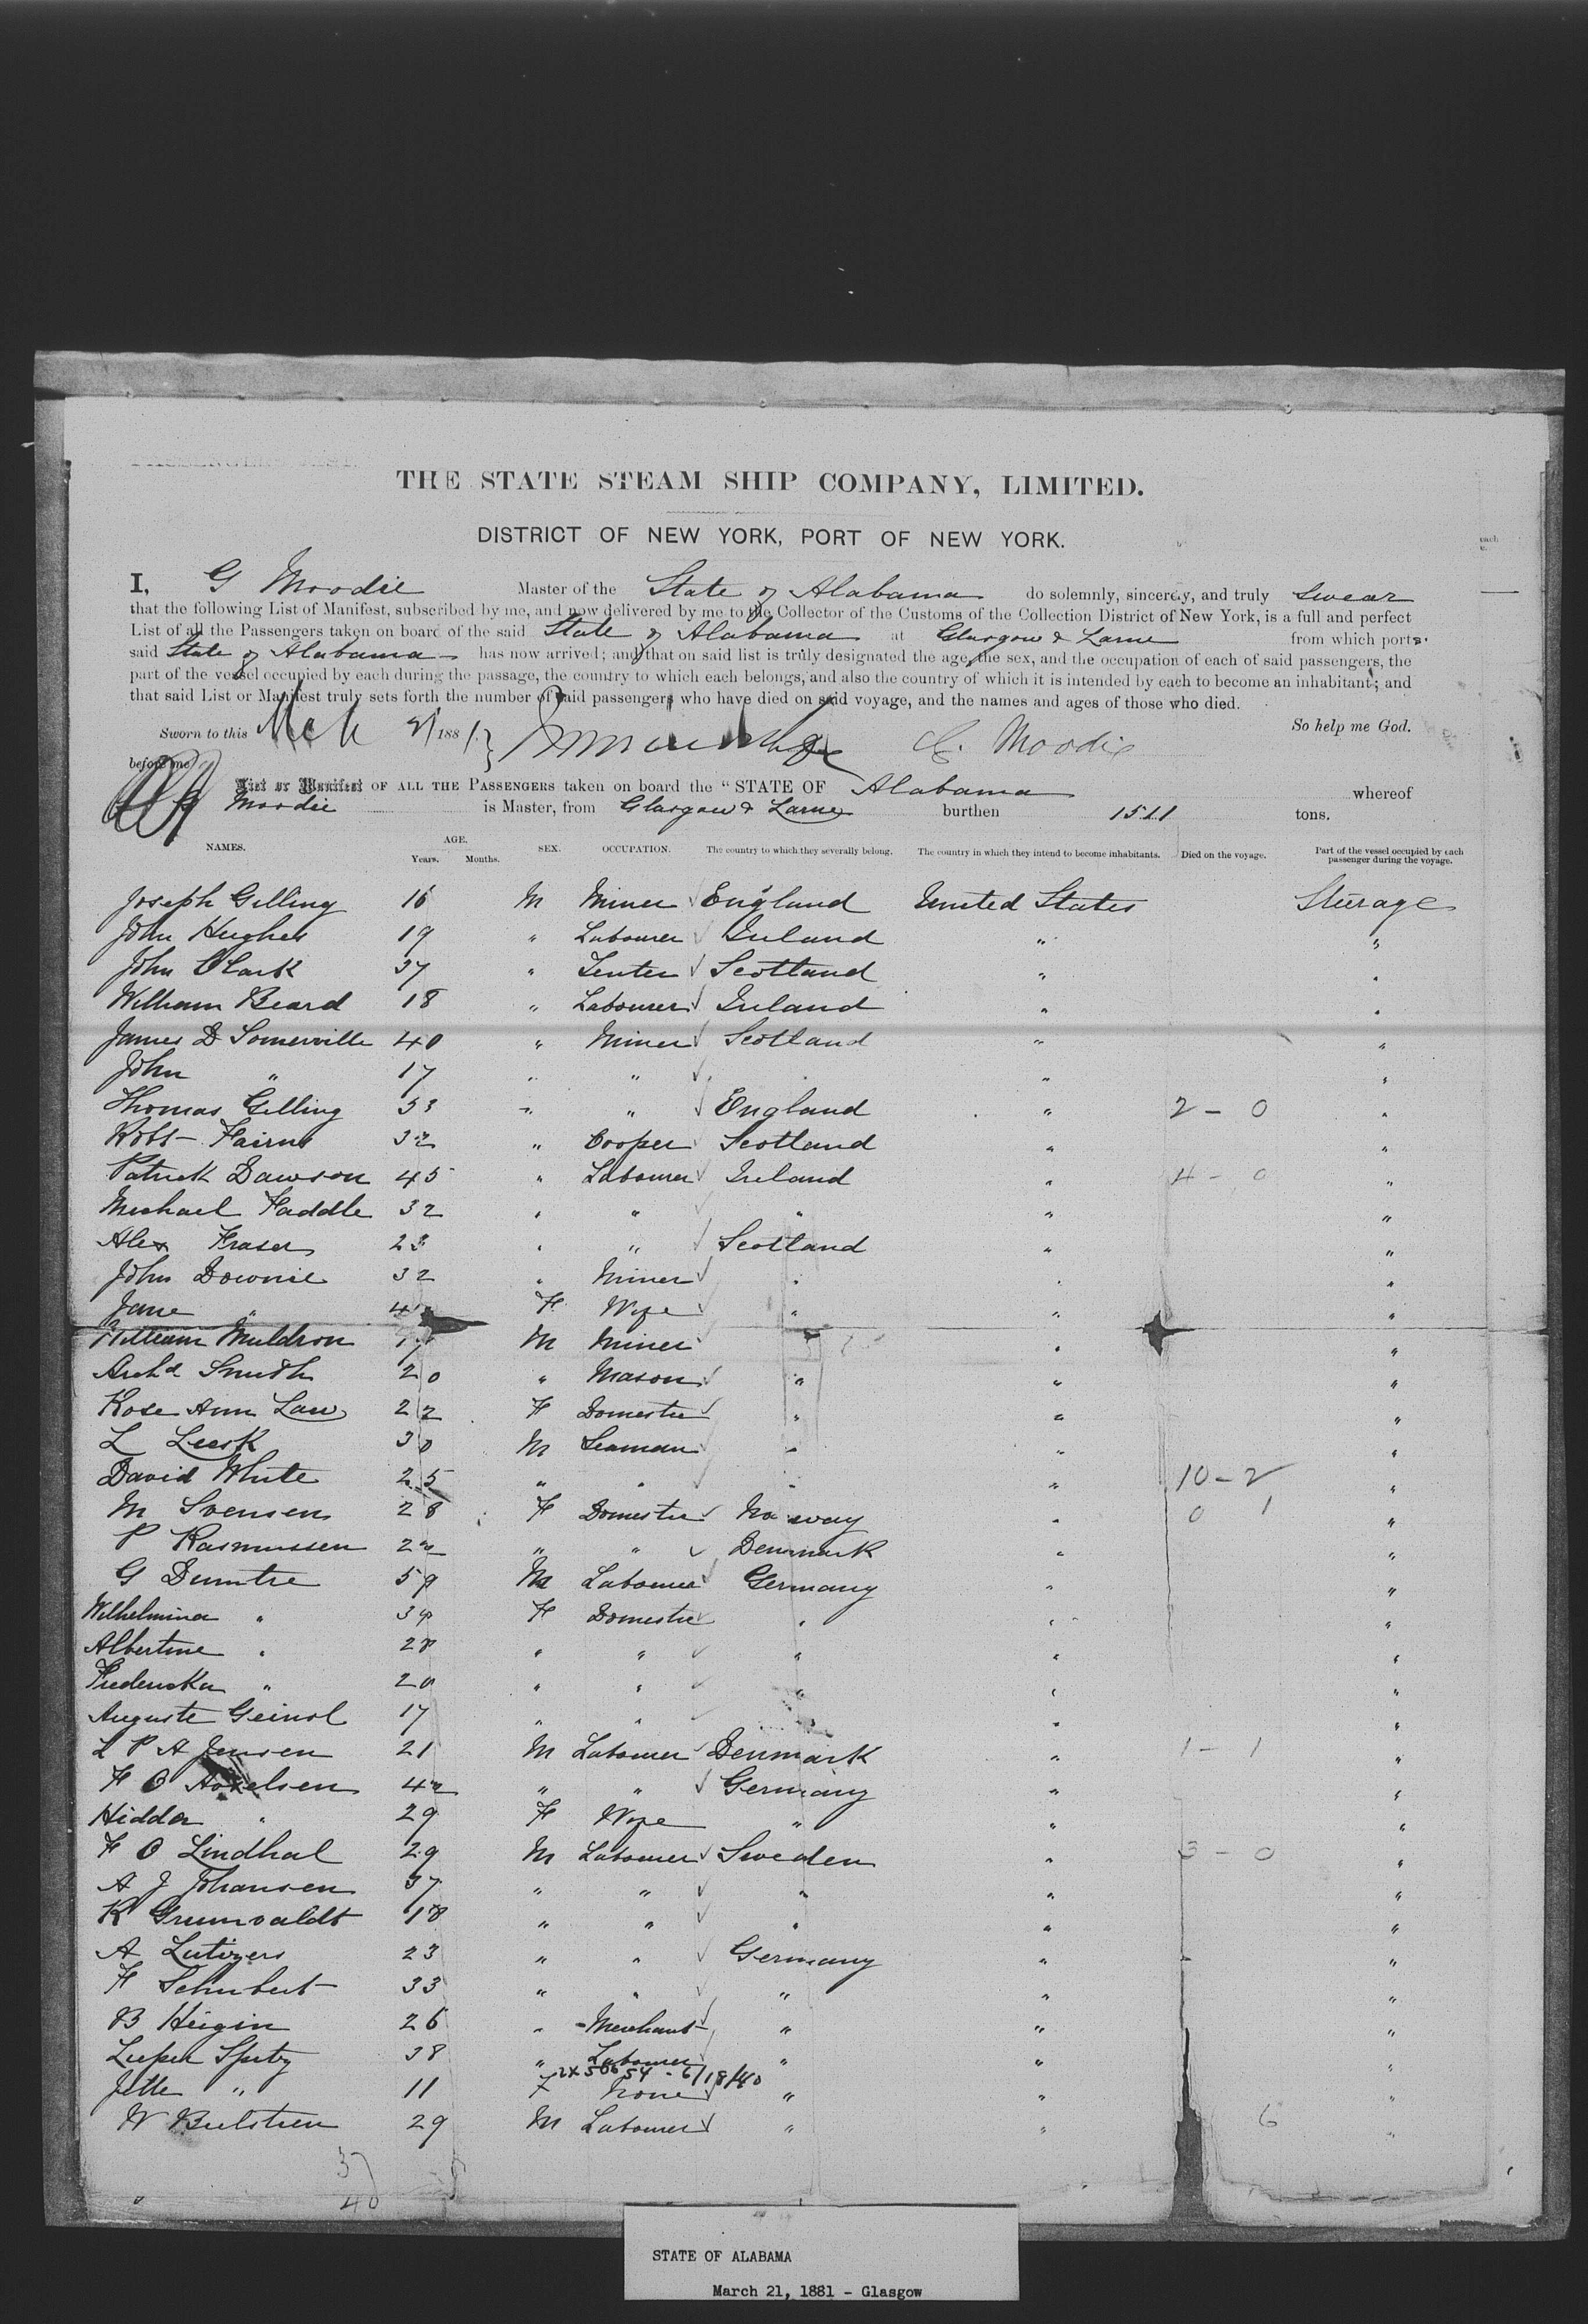 THE STATE STEAM SHIP COMPANY, LIMITED.
DISTRICT OF NEW YORK, PORT OF NEW YORK.
I, G Moodie Master of the State of Alabama do solemnly, sincerely, and truly swear
that the following List of Manifest, subscribed by me, and now delivered by me to the Collector of the Customs of the Collection District of New York, is a full and perfect
List of all the Passengers taken on board of the said State of Alabama at Glasgow & Larne from which ports
said State of Alabama has now arrived; and that on said list is truly designated the age, the sex, and the occupation of each of said passengers, the
part of the vessel occupied by each during the passage, the country to which each belongs, and also the country of which it is intended by each to become an inhabitant; and
that said List or Manifest truly sets forth the number of said passengers who have died on said voyage, and the names and ages of those who died.
Sworn to this Mch 21 1881 G. Moodie So help me God.
before me
List or Manifest OF ALL THE PASSENGERS taken on board the "STATE OF Alabama whereof
G Moodie is Master, from Glasgow & Larne burthen 1511 tons.
NAMES. AGE. Years. Months. SEX. OCCUPATION. The country to which they severally belong. The country in which they intend to become inhabitants. Died on the voyage. Part of the vessel occupied by each passenger during the voyage.
Joseph Gilling 16 M Miner England United States Steerage
John Hughes 19 " Labourer Ireland " "
John Clark 37 " Tenter Scotland " "
William Beard 18 " Labourer Ireland " "
James D Somerville 40 " Miner Scotland " "
John " 17 " " " " "
Thomas Gilling 53 " " England " 2 - 0 "
Robt Fairns 32 " Cooper Scotland " "
Patrick Dawson 45 " Labourer Ireland " 4 - 0 "
Michael Faddle 32 " " " " "
Alex Fraser 23 " " Scotland " "
John Downie 32 " Miner " " "
Jane " F Wife " " "
William Muldron 17 M Miner " "
Archd Smith 20 " Mason " " "
Rose Ann Law 22 F Domestic " " "
L Leask 30 M Seaman " " "
David White 25 " " " " 10 - 2 "
M Svensen 28 F Domestic Norway " 0 1 "
P Rasmussen 22 " " Denmark " "
G Dumtre 59 M Labourer Germany " "
Wilhelmina " F Domestic " " "
Albertine " 28 " " " " "
Frederika " 20 " " " " "
Auguste 17 " " " " "
L P A Jensen 21 M Labourer Denmark " 1 - 1 "
F O Axelsen 42 " " Germany " "
Hidda " 29 F Wife " " "
F O Lindhal 29 M Labourer Sweden " 3 - 0 "
A J Johansen 37 " " " " "
K Grunvaldt 18 " " " " "
A 23 " " Germany " "
F Schubert 33 " " " " "
B Heigin 26 " Merchant " " "
38 " Labourer " " "
2x 50654 - 6/18/40
Jette " 11 F None " " "
W 29 M Labourer " " 6 "
37
40
STATE OF ALABAMA
March 21, 1881 - Glasgow